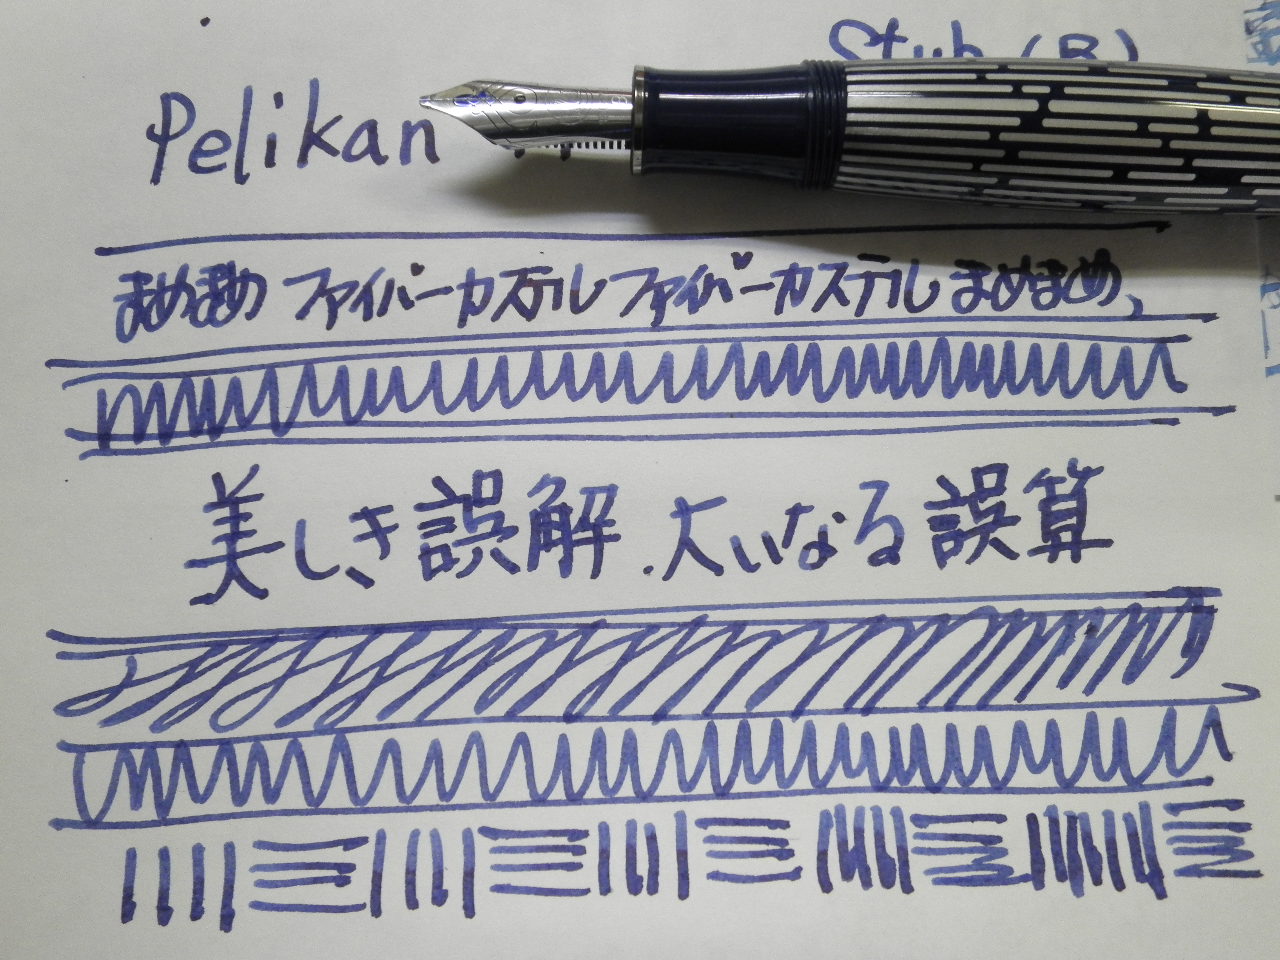 Stub (B)
Pelikan
まめまめ ファイバーカステル ファイバーカステル まめまめ、
美しき誤解．大いなる誤算